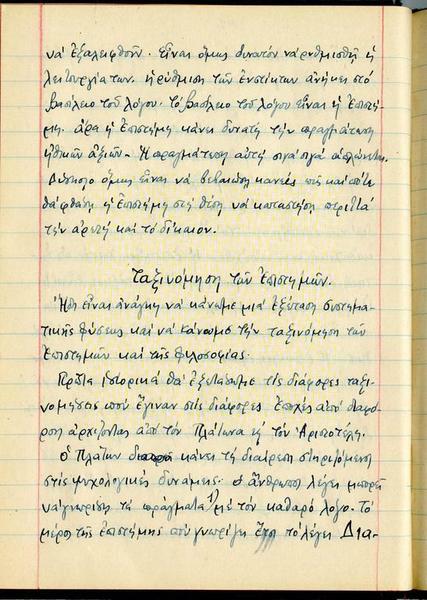 νὰ ἐξαλειφθοῦν. Εἶναι ὅμως δυνατὸν νὰ ρυθμισθῇ ἡ
λειτουργία των. ἡ ρύθμιση τῶν ἐνστίκτων ἀνήκει στὸ
βασίλειο τοῦ λόγου. Τὸ βασίλειο τοῦ λόγου εἶναι ἡ ἐπιστή-
μη. ἄρα ἡ ἐπιστήμη κάνει δυνατὴ τὴν πραγμάτωση
ἠθικῶν ἀξιῶν. Ἡ πραγμάτωση αὐτὴ σιγὰ σιγὰ
Δύσκολο ὅμως εἶναι νὰ βεβαιώσῃ κανεὶς πὼς καὶ πότε
θὰ φθάσῃ ἡ ἐπιστήμη στὴ θέση νὰ καταστήση περιττὰ
τὴν ἀρετὴ καὶ τὸ δίκαιον.
Ταξινόμηση τῶν Ἐπιστημῶν.
Ἤδη εἶναι ἀνάγκη νὰ κάνωμε μιὰ ἐξέταση συστημα-
τικῆς φύσεως καὶ νὰ κάνωμε τὴν ταξινόμηση τῶν
Ἐπιστημῶν καὶ τῆς φιλοσοφίας.
Πρῶτα ἱστορικὰ θὰ ἐξετάσωμε τὶς διάφορες ταξι-
νομήσεις ποὺ ἔγιναν στὶς διάφορες ἐποχὲς ἀπὸ διαφό-
ρους ἀρχίζοντας ἀπὸ τὸν Πλάτωνα ἢ τὸν Ἀριστοτέλη.
Ὁ Πλάτων κάνει τὴ διαίρεση στηριζόμενος
στὶς ψυχολογικὲς δυνάμεις. ὁ ἄνθρωπος λέγει μπορεῖ
νὰ γνωρίση τὰ πράγματα 1) μὲ τὸν καθαρὸ λόγο. Τὸ
μέρος τῆς ἐπιστήμης ποὺ γνωρίζει ἔτσι τὸ λέγει Δια-